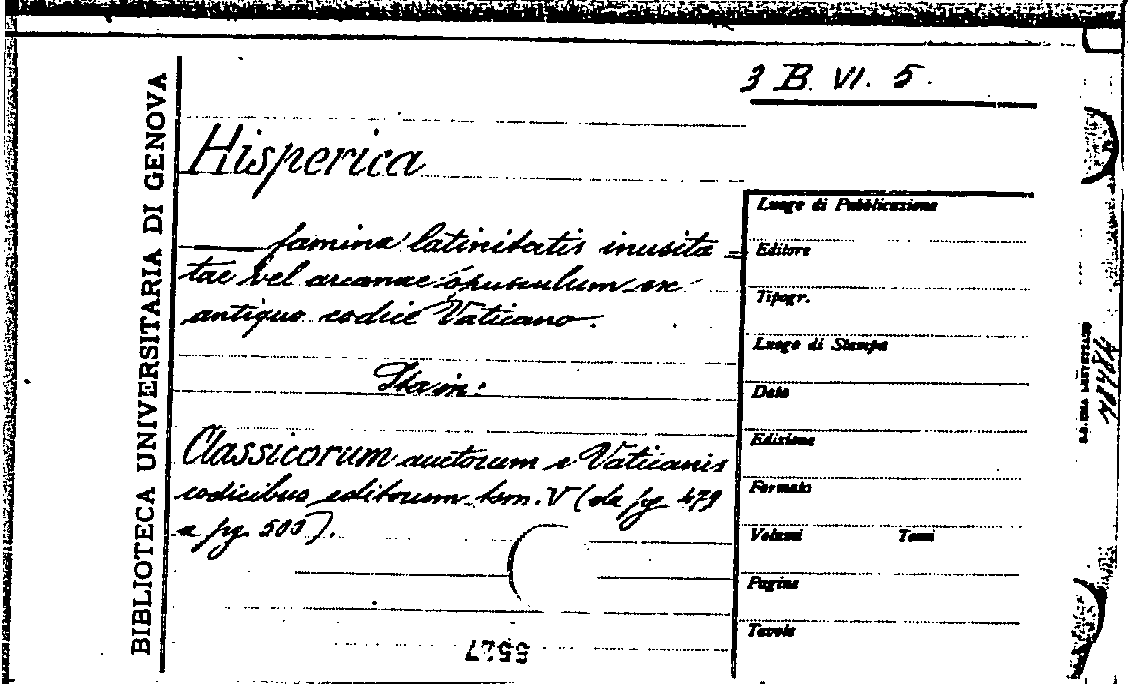 3 B. VI. 5.
BIBLIOTECA UNIVERSITARIA DI GENOVA
Hisperica
famina latinitatis inusita =
tae vel arcanae opusculum ex
antiquo codice Vaticano.
Sta in:
Classicorum auctorum e Vaticanis
codicibus editorum tom. V (da pg. 479
a pg. 500).
5527
Luogo di Pubblicazione
Editore
Tipogr.
Luogo di Stampa
Data
Edizione
Formato
Volumi Tomi
Pagine
Tavole